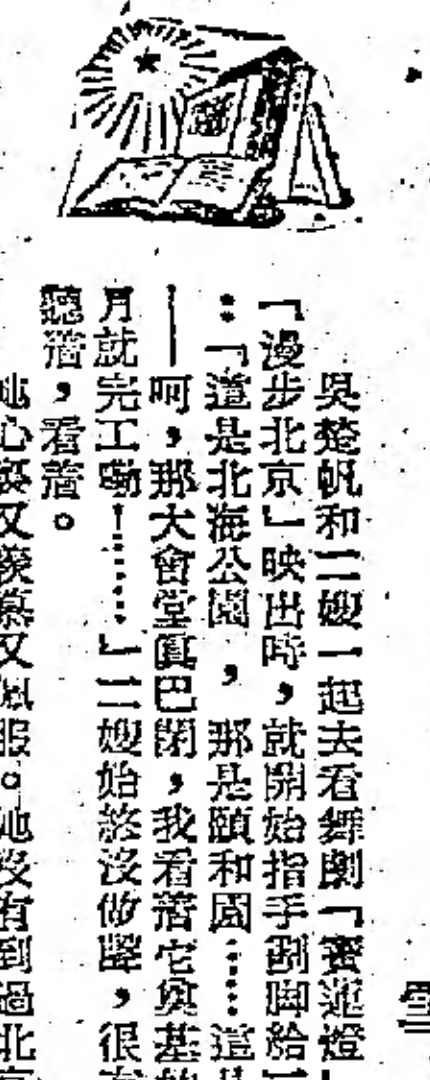 吳楚帆和二嫂一起去看舞劇「寳蓮燈」
「漫步北京」映出時，就開始指手劃脚給二
：「這是北海公園，那是頤和園……這是
——呵，那大會堂眞巴閉，我看着它奠基
月就完工嘞！……」二嫂始終沒做聲，很
聽着，看着。
她心裏又羨慕又佩服。她沒有到過北京